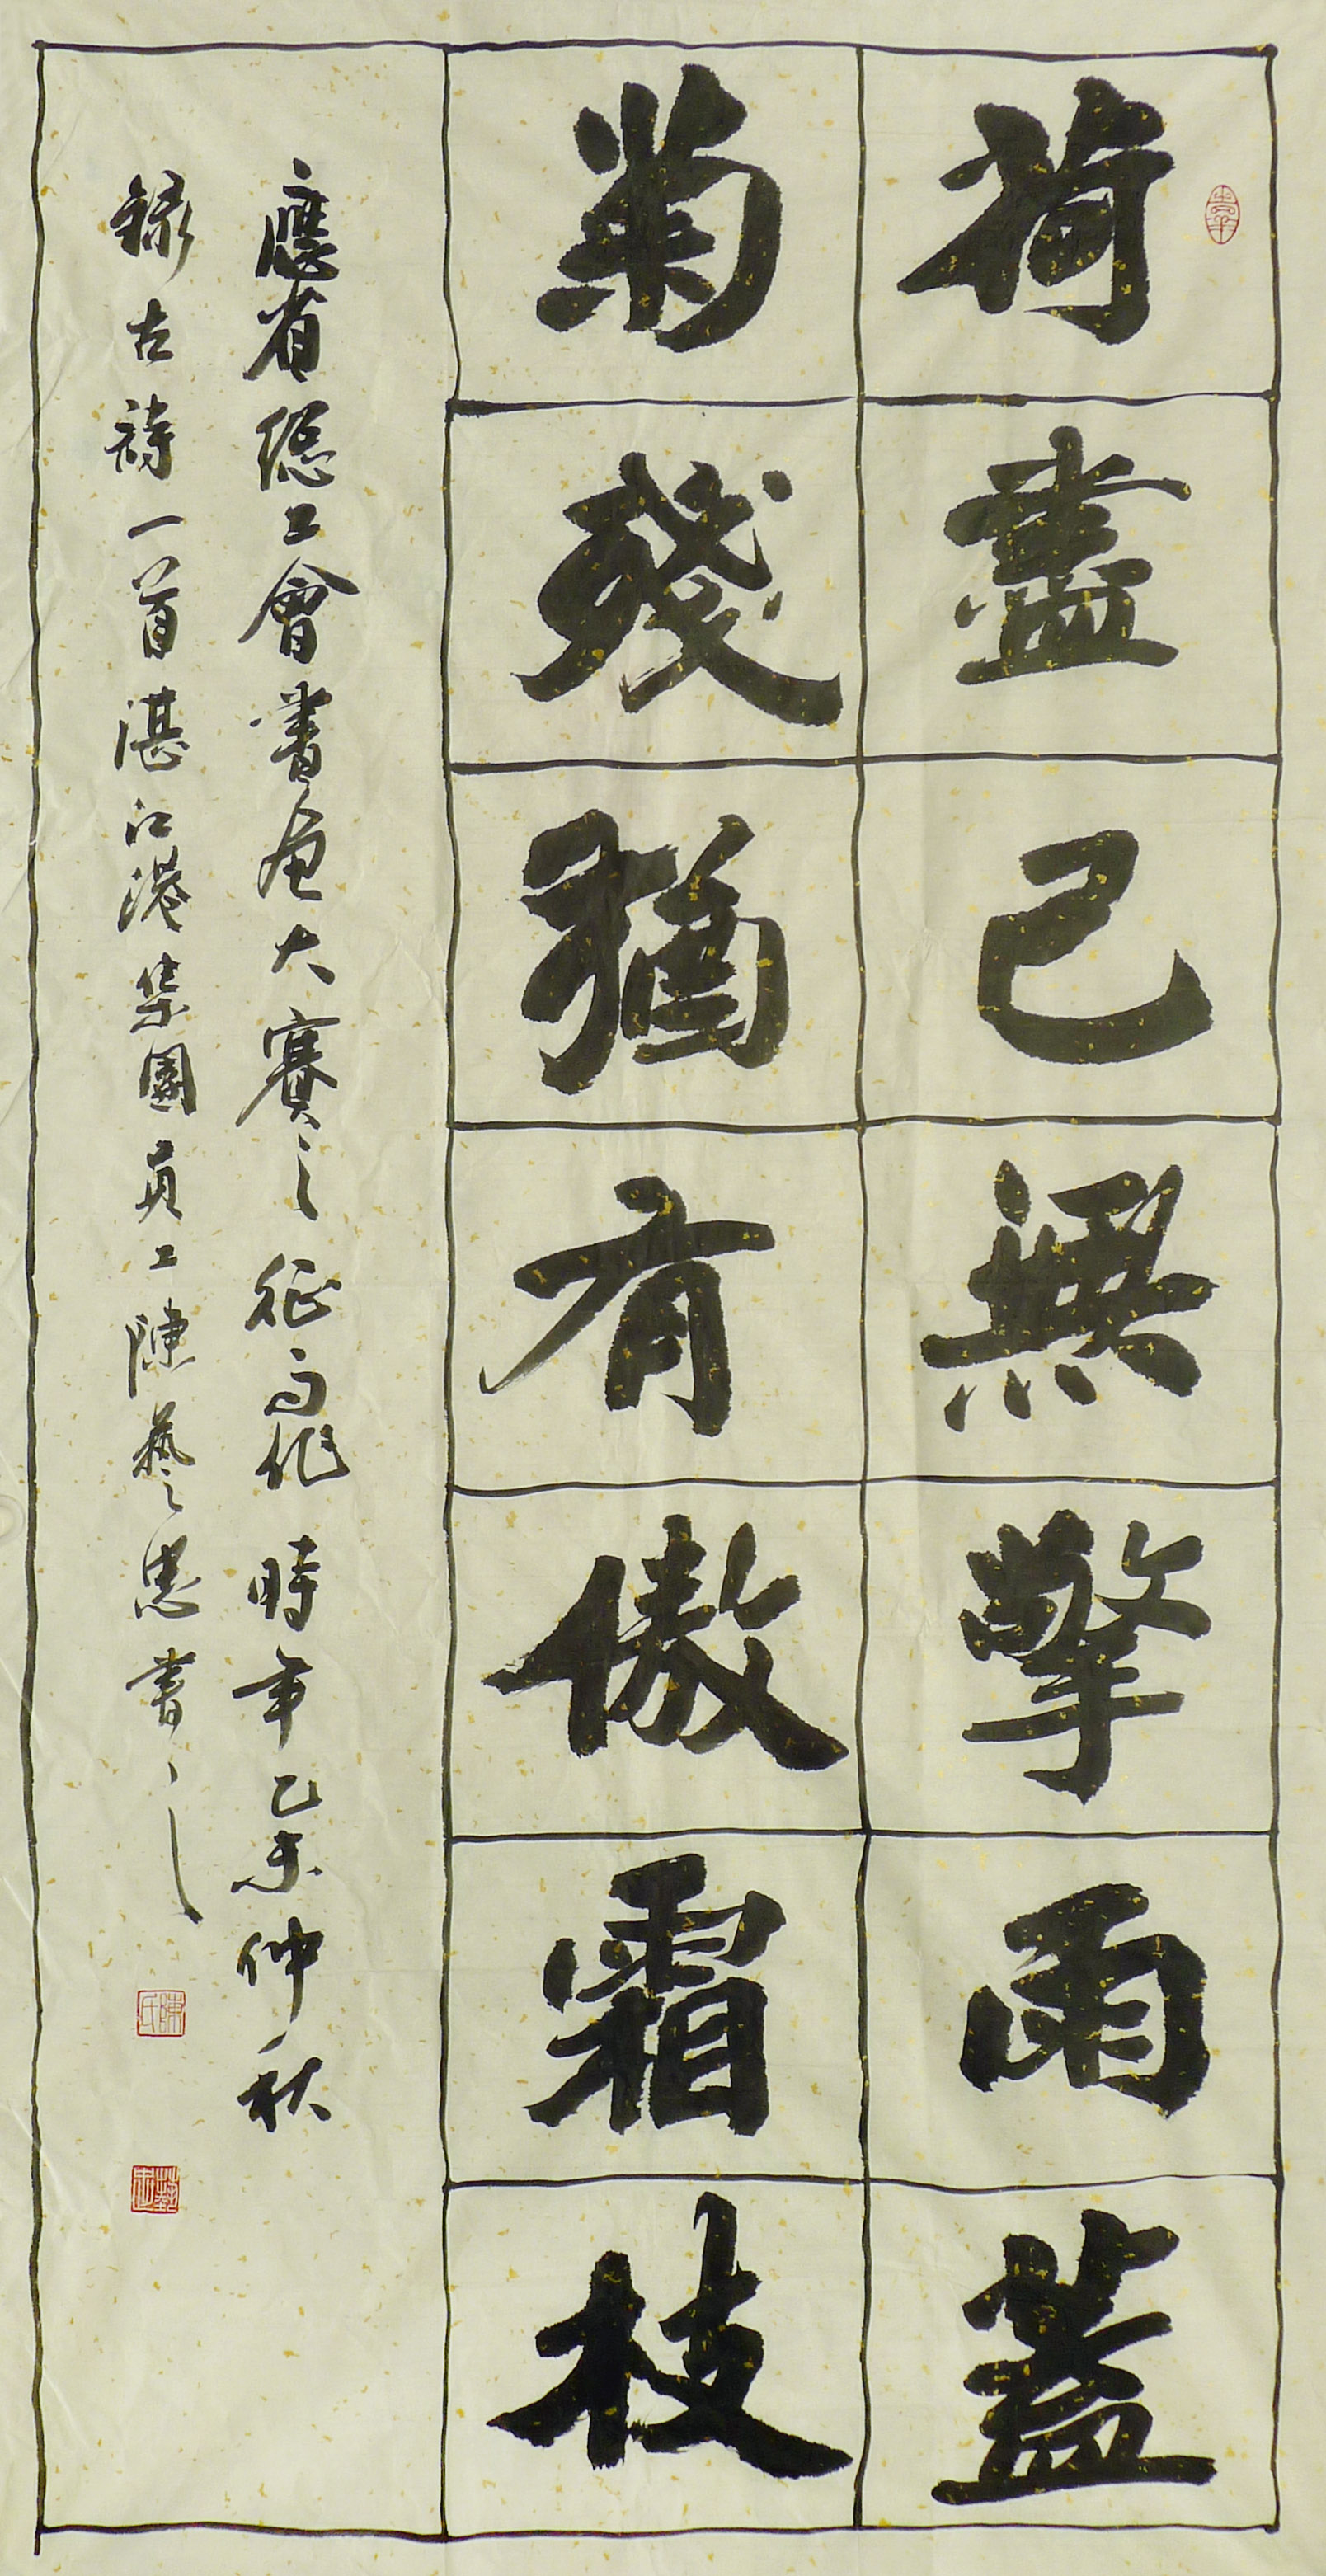 荷盡已無擎雨蓋
菊殘猶有傲霜枝
應省總工會書畫大賽之征而作時年乙未仲秋
錄古詩一首湛江港集團員工陳藝忠書
陳氏
藝忠